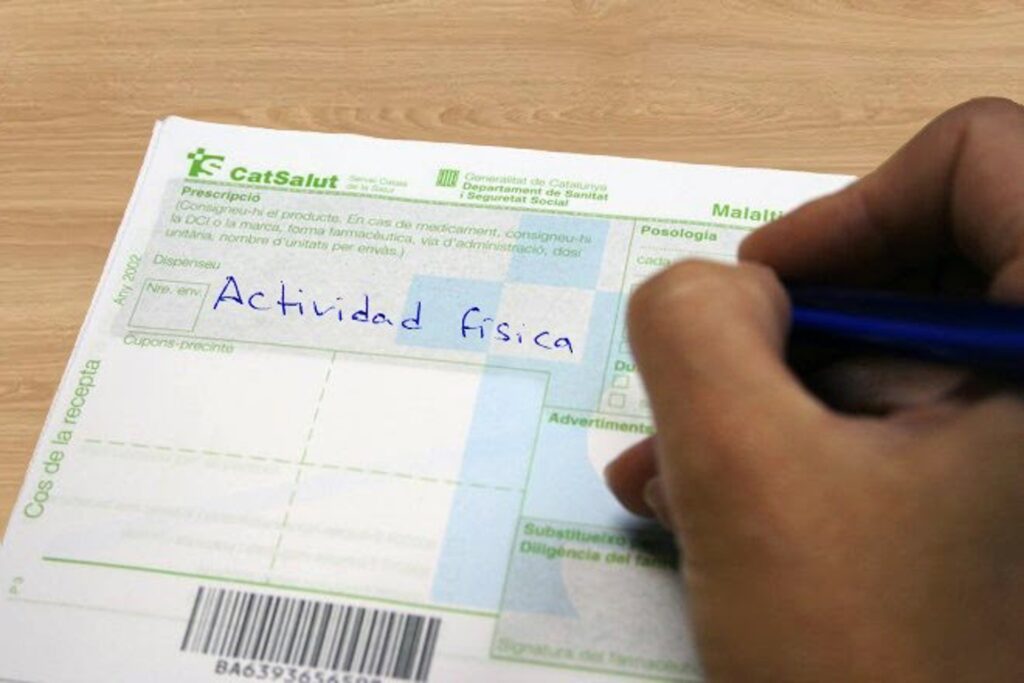 CatSalut
Servei Català
de la Salut
Generalitat de Catalunya
Departament de Sanitat
i Seguretat Social
Malalti
Prescripció
(Consigneu-hi el producte. En cas de medicament, consigneu-hi
la DCI o la marca, forma farmacèutica, via d'administració, dosi
unitària, nombre d'unitats per envàs.)
Posologia
cada
Dispenseu
Nre. env.
Actividad física
Any 2002
Cupons-precinte
Du
Advertiments
Cos de la recepta
Substitueixo
Diligència del farm
P3
Signatura del farmacèutic
BA6393656